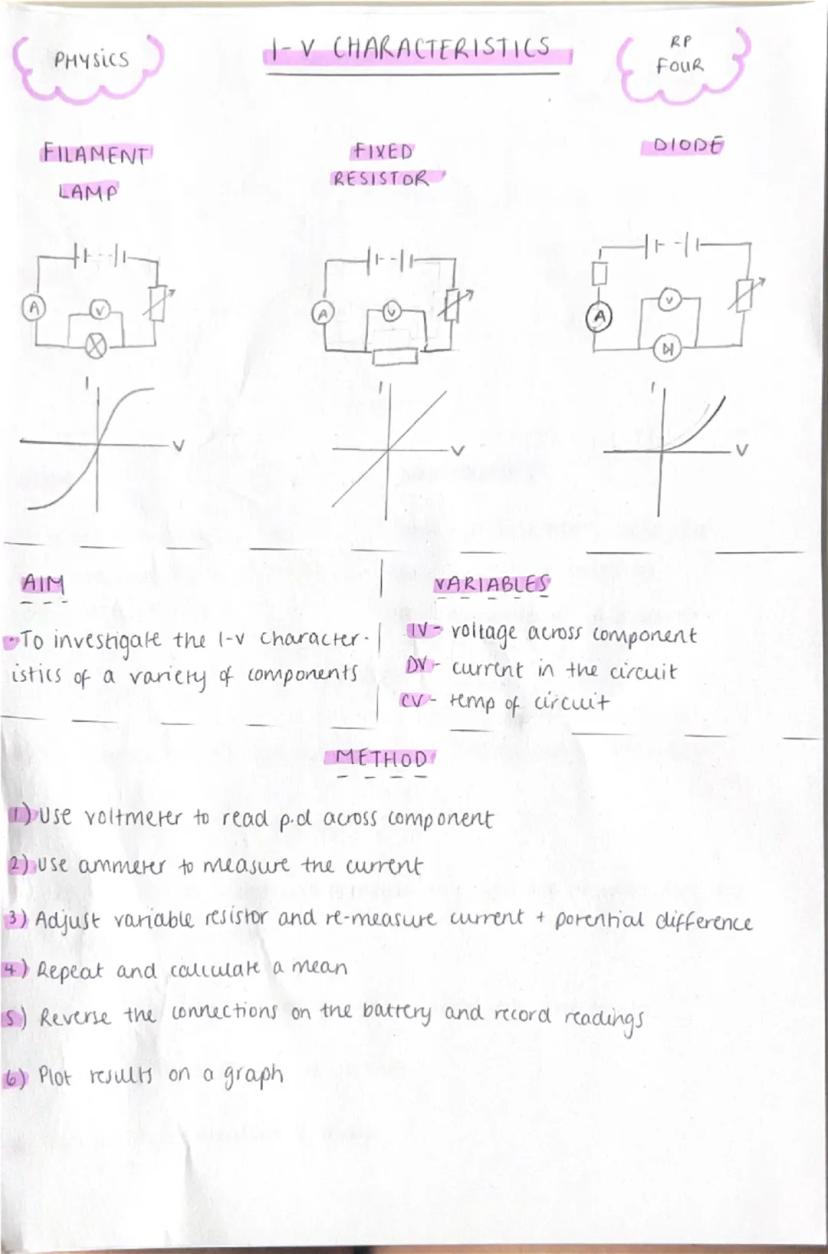 PHYSICS
I-V CHARACTERISTICS
RP
FOUR
FILAMENT
LAMP
FIXED
RESISTOR
DIODE
A
V
A
V
A
V
I
V
I
V
I
V
AIM
-To investigate the I-V character-
istics of a variety of components
VARIABLES
IV- voltage across component
DV- current in the circuit
CV- temp of circuit
METHOD
1) Use voltmeter to read p.d across component
2) Use ammeter to measure the current
3) Adjust variable resistor and re-measure current + potential difference
4) Repeat and calculate a mean
5) Reverse the connections on the battery and record readings
6) Plot results on a graph